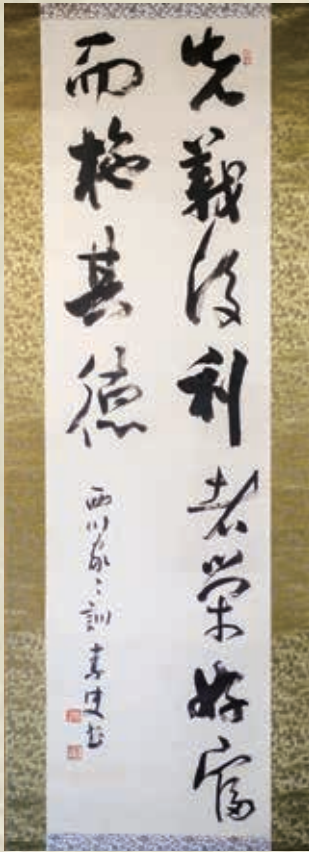 先義後利者栄好富
而施其徳
西川家々訓